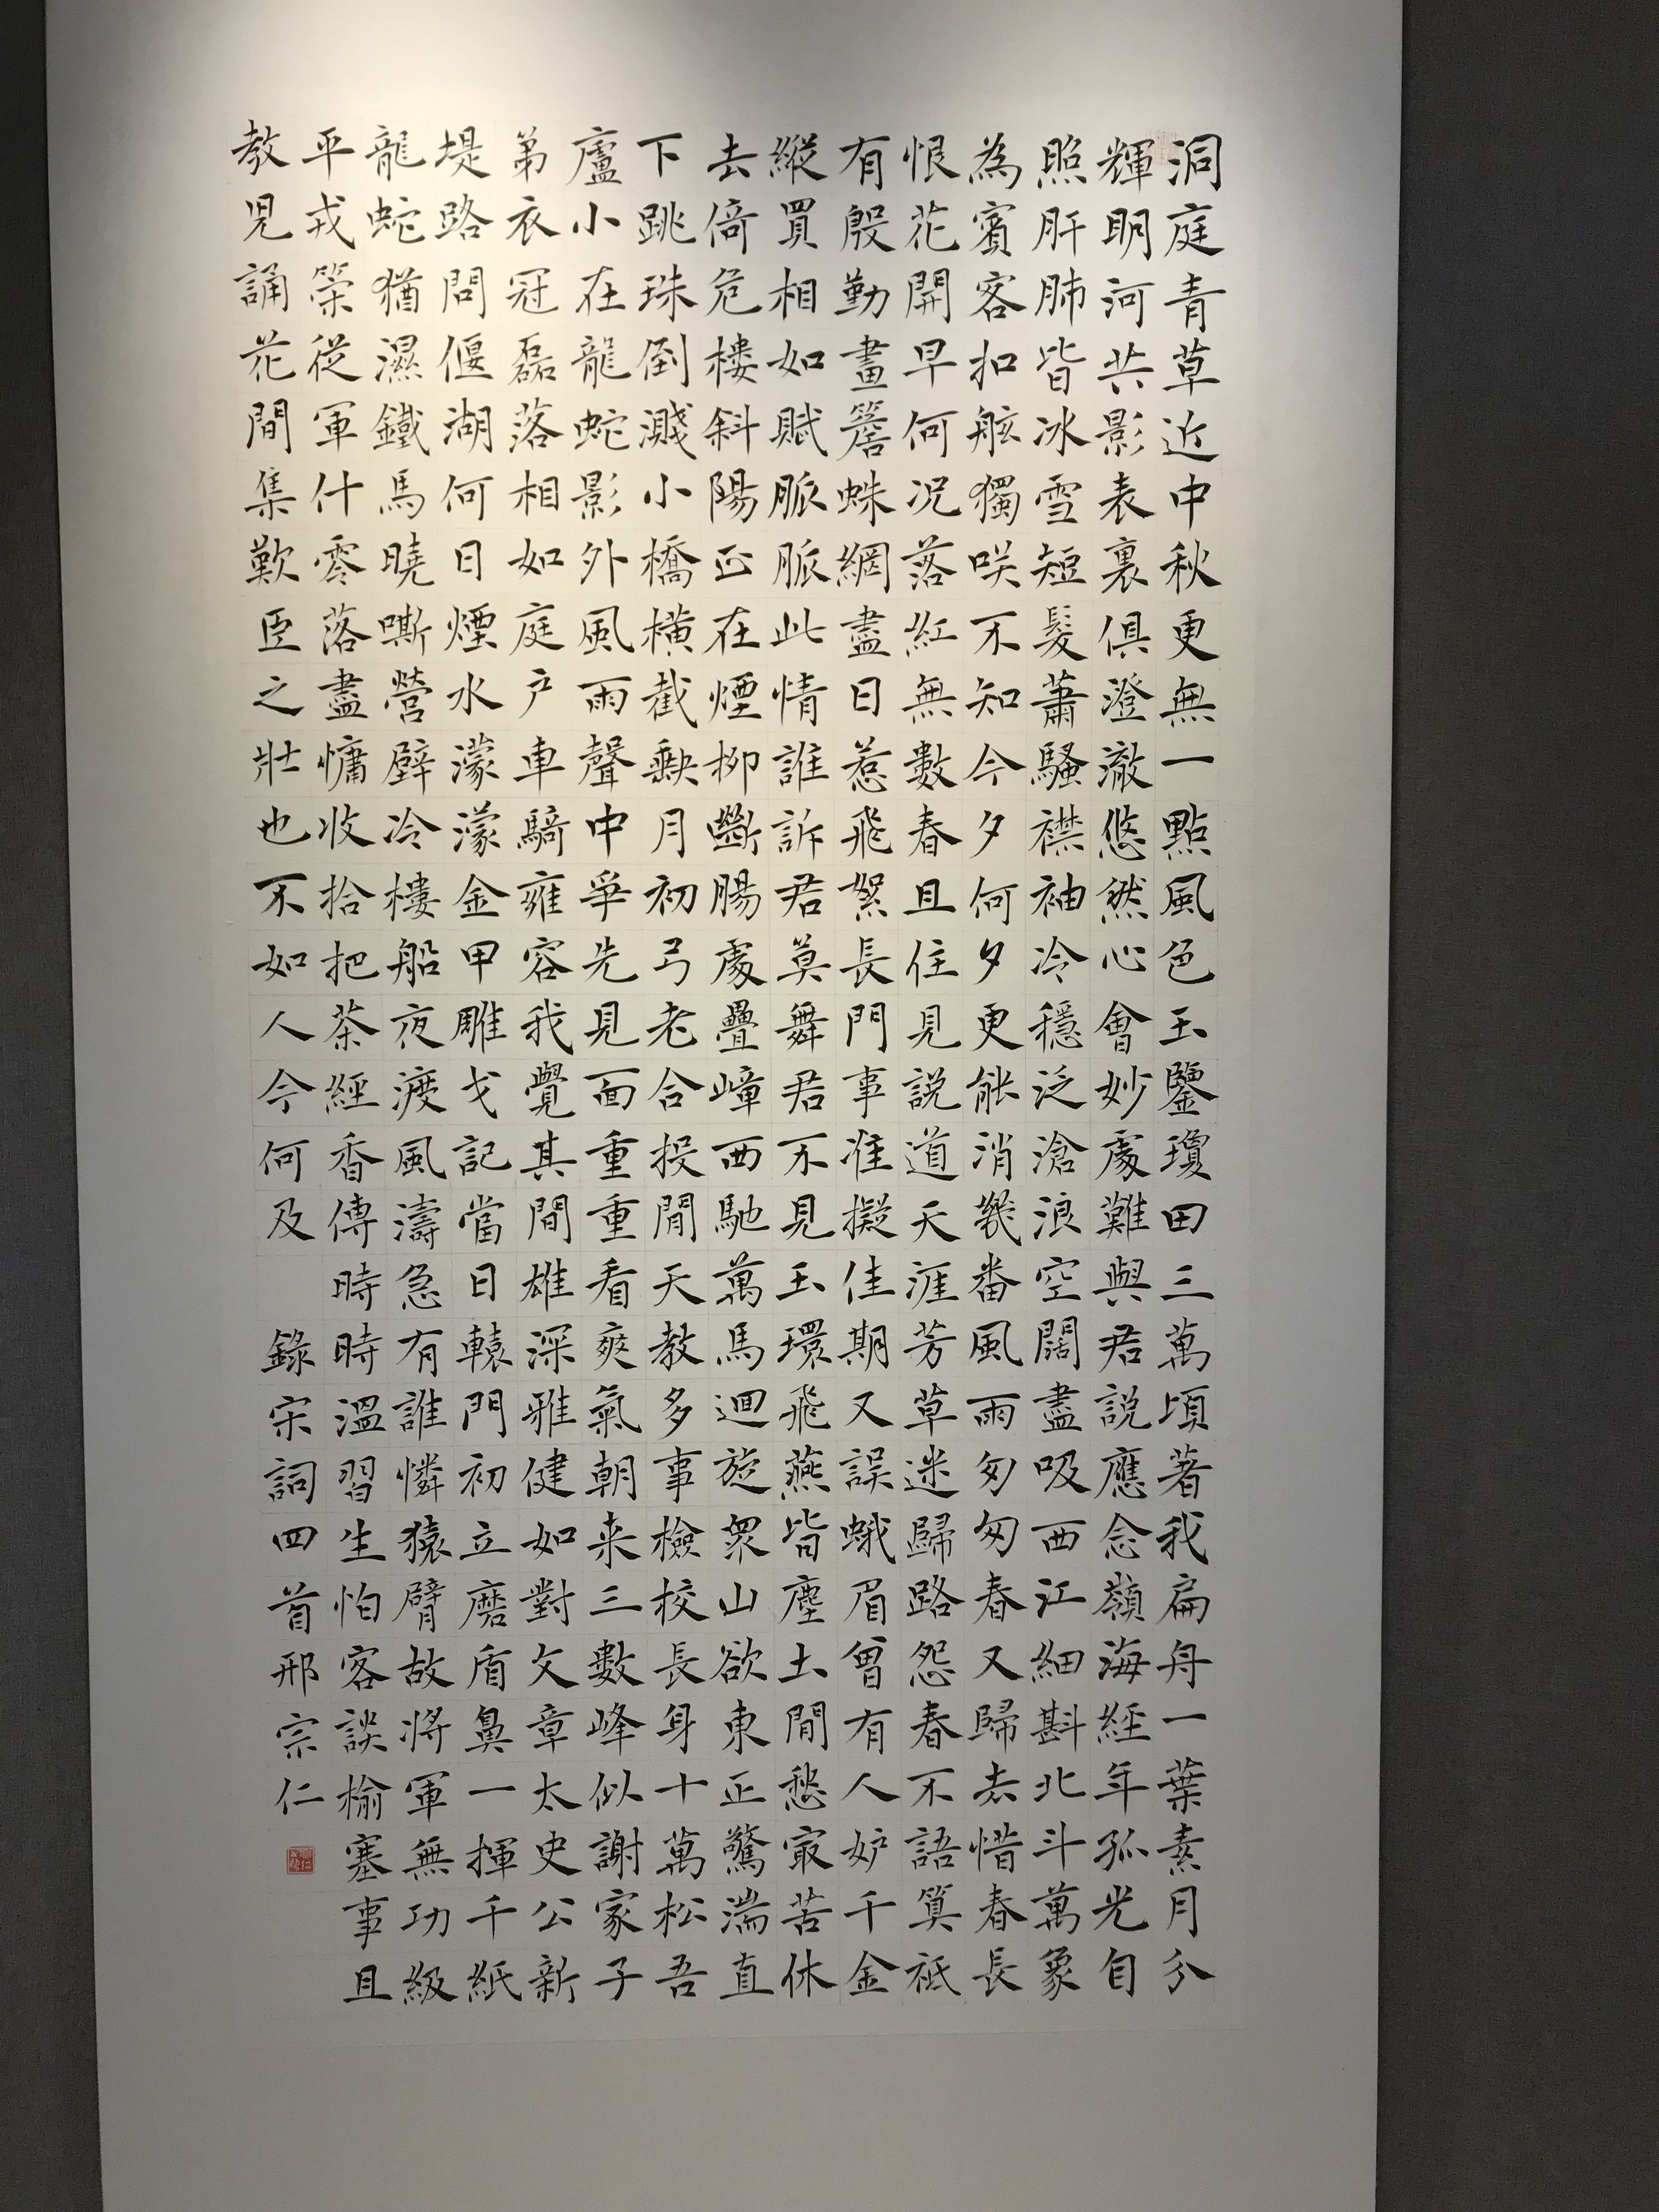 洞庭青草近中秋更無一點風色玉鑒瓊田三萬頃著我扁舟一葉素月分
輝明河共影表裏俱澄澈悠然心會妙處難與君說應念嶺海經年孤光自
照肝肺皆冰雪短髮蕭騷襟袖冷穩泛滄浪空闊盡吸西江細斟北斗萬象
為賓客扣舷獨咲不知今夕何夕更能消幾番風雨匆匆春又歸去惜春長
恨花開早何況落紅無數春且住見說道天涯芳草迷歸路怨春不語算祇
有殷勤畫簷蛛網盡日惹飛絮長門事准擬佳期又誤蛾眉曾有人妒千金
縱買相如賦脈脈此情誰訴君莫舞君不見玉環飛燕皆塵土閒愁最苦休
去倚危樓斜陽正在煙柳斷腸處疊嶂西馳萬馬迴旋眾山欲東正驚湍直
下跳珠倒濺小橋橫截缺月初弓老合投閒天教多事檢校長身十萬松吾
廬小在龍蛇影外風雨聲中爭先見面重重看爽氣朝来三數峰似謝家子
弟衣冠磊落相如庭戶車騎雍容我覺其間雄深雅健如對文章太史公新
堤路問偃湖何日煙水濛濛金甲雕戈記當日轅門初立磨盾鼻一揮千紙
龍蛇猶濕鐵馬曉嘶營壁冷樓船夜渡風濤急有誰憐猿臂故將軍無功級
平戎策從軍什零落盡慵收拾把茶經香傳時時溫習生怕客談榆塞事且
教兒誦花間集歎臣之壯也不如人今何及 錄宋詞四首邢宗仁